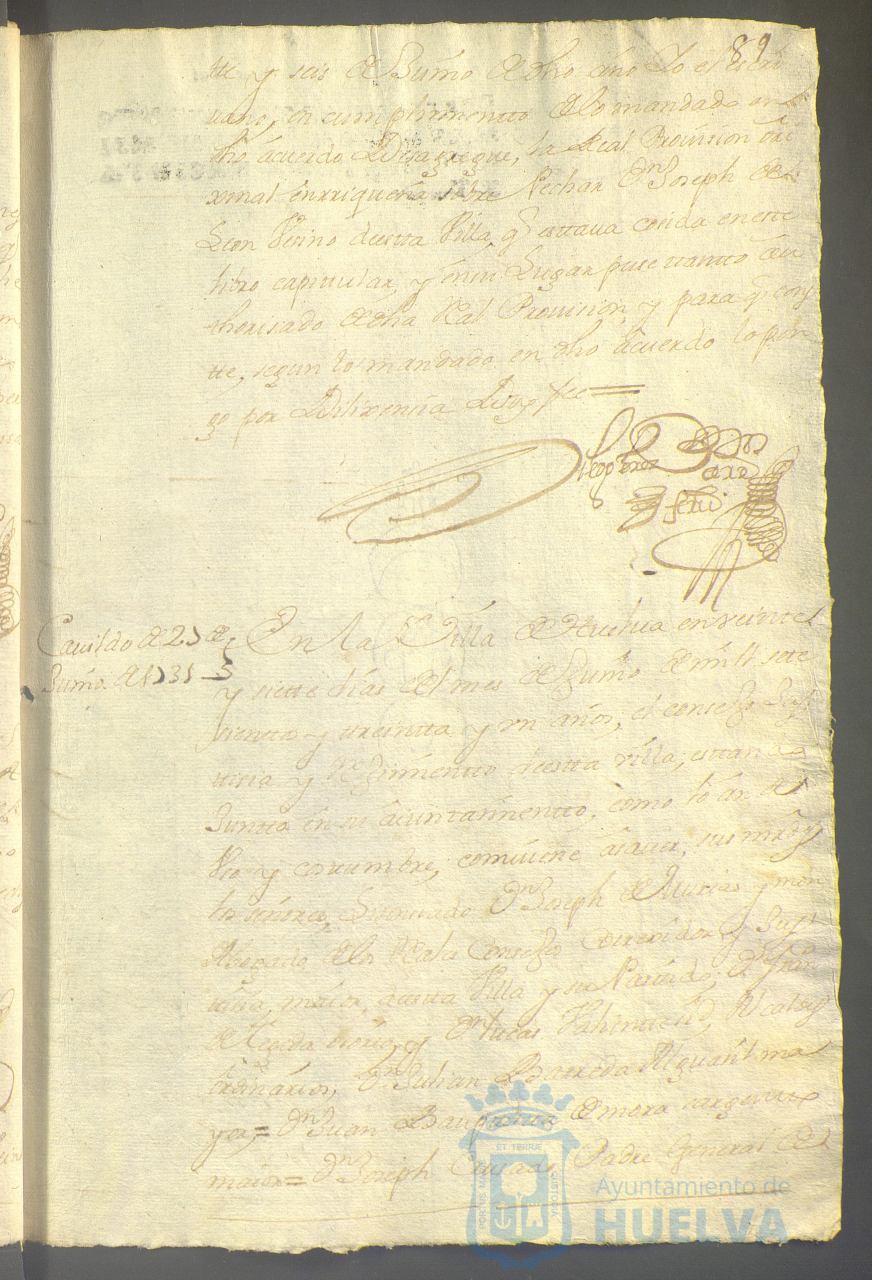 89
tte y seis de Junio de dho año Yo el escri
uano, en cumplimientto de lo mandado en
dho acuerdo Desagregue, la Real Provission ori
xinal enrriqueña sobre Rechar Dn Joseph de
Leon Vezino deestta Villa, q estaua cosida en este
libro capitular, y en su Lugar puse tantto au
thorisado de dha Real Provission, y para q cons
tte, segun lo mandado en dho acuerdo lo pon
go por Dilixencia Doy fee=
Cauildo de 27 de
Junio de 1731
En la Villa de Huelva en veinte
y siette dias del mes de Junio de mill sete
sientos y treintta y un años, el consejo Jus
ticia y Reximientto deestta villa, esttando
Juntta en su aiuntamientto, como lo an de
Vso y costumbre, combiene asauer, sus mrds
los señores, Lizenciado Dn Joseph de Murias y mon
Abogado de los Reales Consejos Correxidor y Jus
ticia, maior, deestta Villa y su Partido, Dn Fran
de Tegada osorio, y Dn Lucas Alcaldes
ordinarios, Dn Julian Barreda Alguasil ma
yor,= Dn Juan Baupttista de mora sargentto
maior= Dn Joseph Padre General de
PORTUS MARIS
ET TERRÆ
CUSTODIA
Ayuntamiento de
HUELVA